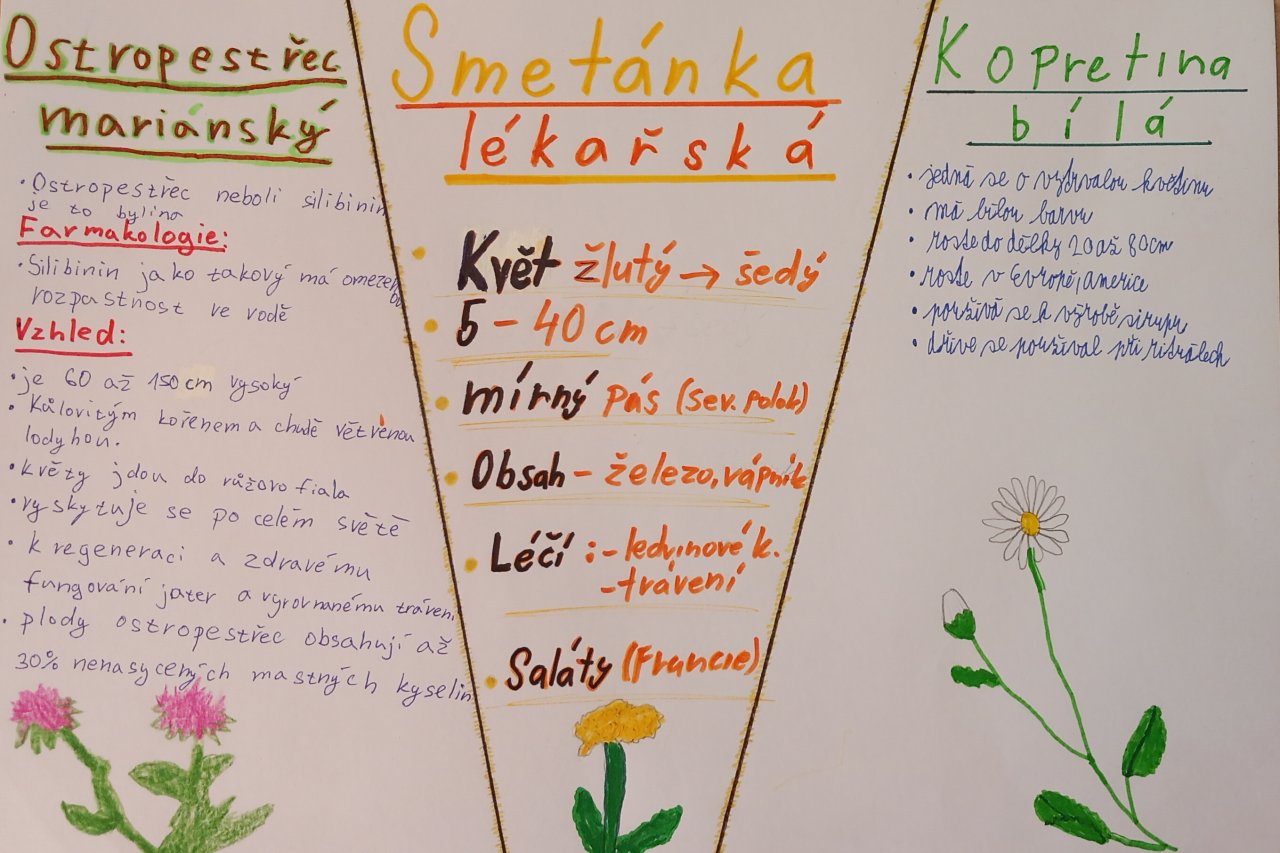 Ostropestřec
mariánský
• Ostropestřec neboli silibinin
je to bylina
Farmakologie:
• Silibinin jako takový má omezenou
rozpastňost ve vodě
Vzhled:
• je 60 až 150 cm vysoký
• Kůlovitým kořenem a chudě větvenou
lodyhou.
• květy jdou do růžovo fiala
• vyskytuje se po celém světě
• k regeneraci a zdravému
fungování jater a vyrovnanému trávení
• plody ostropestřec obsahují až
30% nenasycených mastných kyselin
Smetánka
lékařská
• Květ žlutý → šedý
• 5 - 40 cm
• mírný pás (sev. polok)
• Obsah - železo, vápník
• Léčí : - ledvinové k.
- trávení
• Saláty (Francie)
Kopretina
bílá
• jedná se o vztrvalou květinu
• má bílou barvu
• roste do délky 20 až 80cm
• roste v Evropě, americe
• používá se k výrobě sirupu
• dříve se používal při ritrálech